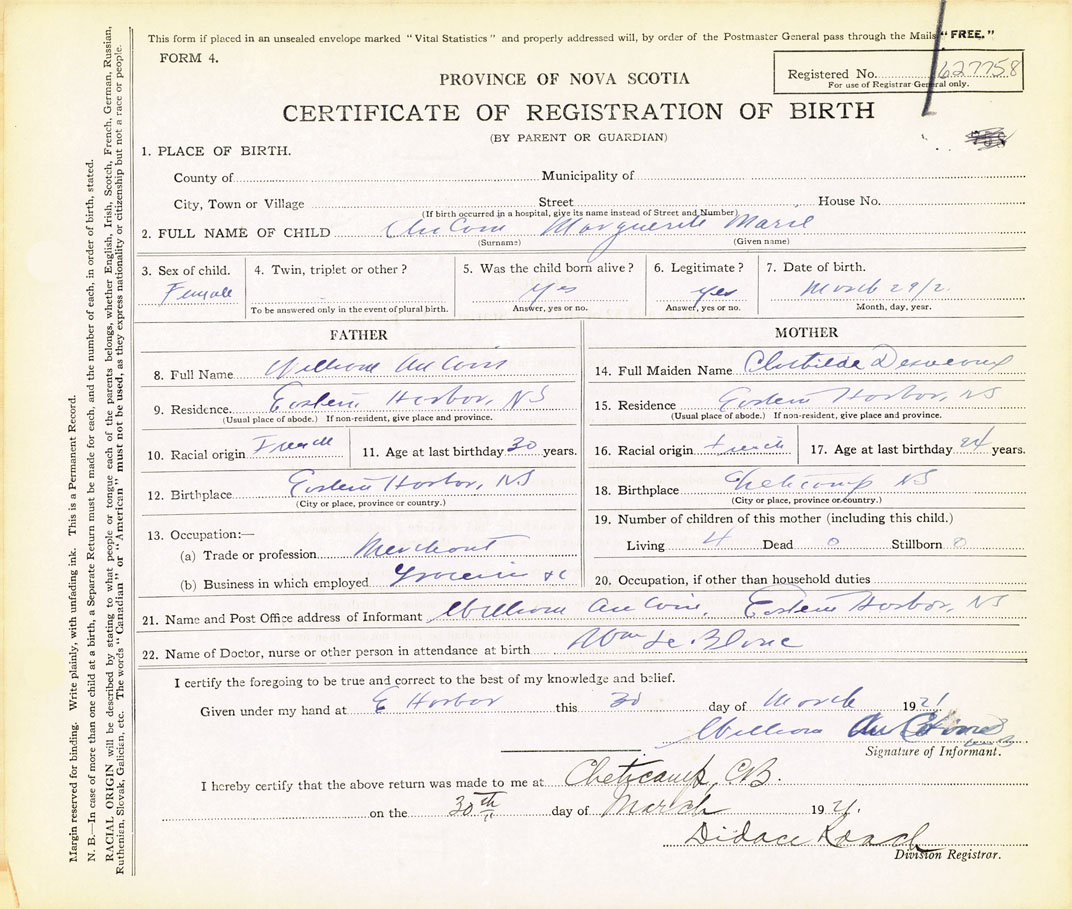 This form if placed in an unsealed envelope marked "Vital Statistics" and properly addressed will, by order of the Postmaster General pass through the Mails "FREE."
FORM 4.
PROVINCE OF NOVA SCOTIA
Registered No. 627758
For use of Registrar General only.
CERTIFICATE OF REGISTRATION OF BIRTH
(BY PARENT OR GUARDIAN)
1. PLACE OF BIRTH.
County of Municipality of
City, Town or Village Street House No.
(If birth occurred in a hospital, give its name instead of Street and Number)
2. FULL NAME OF CHILD AuCoin Marguerite Marie
(Surname) (Given name)
3. Sex of child. 4. Twin, triplet or other? 5. Was the child born alive? 6. Legitimate? 7. Date of birth.
Female yes yes March 29/2
To be answered only in the event of plural birth. Answer, yes or no. Answer, yes or no. Month, day, year.
FATHER MOTHER
8. Full Name William AuCoin 14. Full Maiden Name Clothilda Desveaux
9. Residence. Eastern Harbor, NS 15. Residence Eastern Harbor, NS
(Usual place of abode.) If non-resident, give place and province. (Usual place of abode.) If non-resident, give place and province.
10. Racial origin French 11. Age at last birthday 30 years. 16. Racial origin French 17. Age at last birthday 24 years.
12. Birthplace Eastern Harbor, NS 18. Birthplace Cheticamp NS
(City or place, province or country.) (City or place, province or country.)
13. Occupation:— 19. Number of children of this mother (including this child.)
(a) Trade or profession Merchant Living 4 Dead 0 Stillborn 0
(b) Business in which employed Groceries &c 20. Occupation, if other than household duties
21. Name and Post Office address of Informant William AuCoin, Eastern Harbor, NS
22. Name of Doctor, nurse or other person in attendance at birth Wm Le Blanc
I certify the foregoing to be true and correct to the best of my knowledge and belief.
Given under my hand at E Harbor this 30 day of March 1921
William AuCoin
Signature of Informant.
I hereby certify that the above return was made to me at Cheticamp, C.B.
on the 30th day of March 1921.
Didace Roach
Division Registrar.
Margin reserved for binding. Write plainly, with unfading ink. This is a Permanent Record.
N. B.—In case of more than one child at a birth, a Separate Return must be made for each, and the number of each, in order of birth, stated.
RACIAL ORIGIN will be described by stating to what people or tongue each of the parents belongs, whether English, Irish, Scotch, French, German, Russian,
Ruthenian, Slovak, Galician, etc. The words "Canadian" or "American" must not be used, as they express nationality or citizenship but not a race or people.